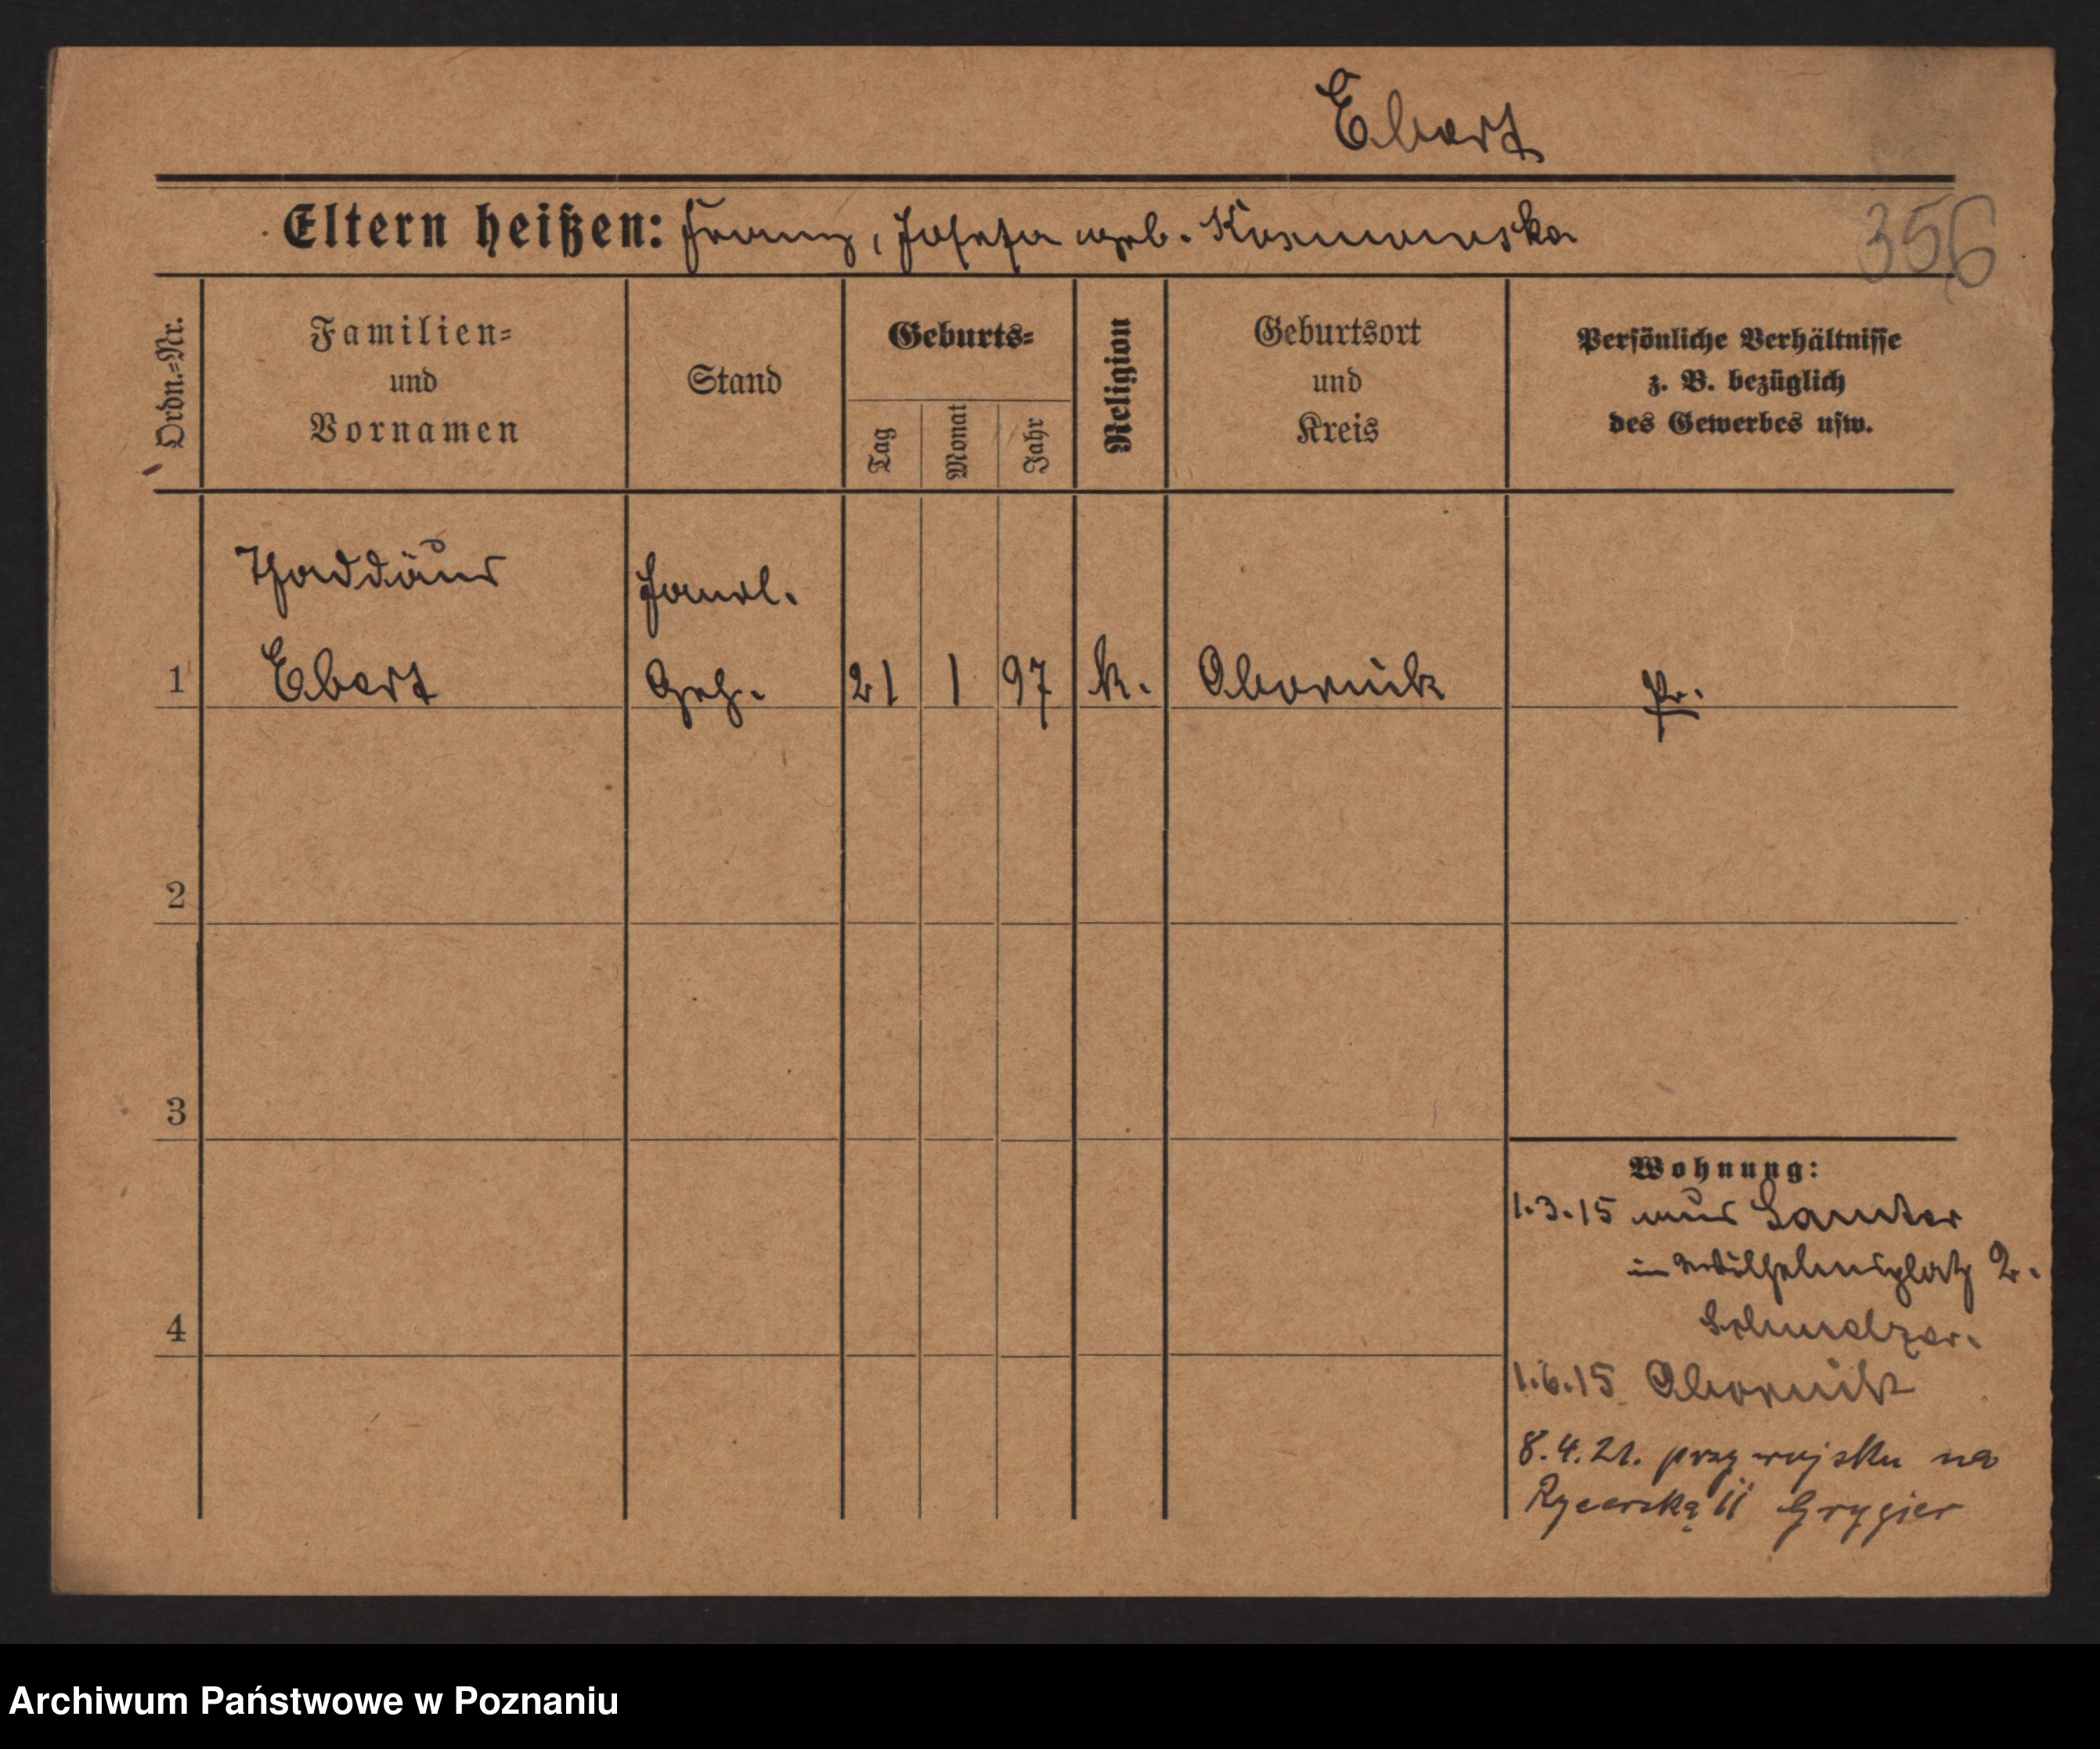 Ebert
Eltern heißen: Franz, Josefa geb. Kosmowska
356
Ordn.=Nr.
Familien=
und
Vornamen
Stand
Geburts=
Tag
Monat
Jahr
Religion
Geburtsort
und
Kreis
Persönliche Verhältnisse
z. B. bezüglich
des Gewerbes usw.
Thaddäus Handl.
1 Ebert Geh. 21 1 97 k. Obornik Pr.
2
3
Wohnung:
1.3.15 aus Samter
in Wilhelmsplatz 2.
Schmelzer.
4
1.6.15 Obornik
8.4.21. przy wojsku na
Rycerską 11 Grygier
Archiwum Państwowe w Poznaniu